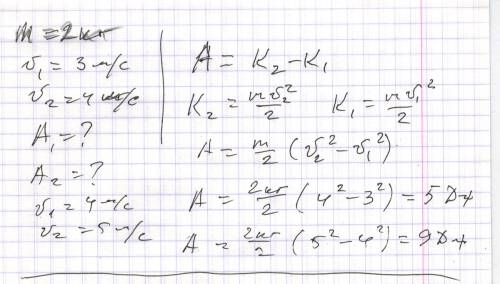 m = 2кг
υ₁ = 3 м/с
υ₂ = 4 м/с
A₁ = ?
A₂ = ?
υ₁ = 4 м/с
υ₂ = 5 м/с
A = K₂ - K₁
K₂ = mυ₂²/2 K₁ = mυ₁²/2
A = m/2 (υ₂² - υ₁²)
A = 2кг/2 (4² - 3²) = 5 Дж
A = 2кг/2 (5² - 4²) = 9 Дж